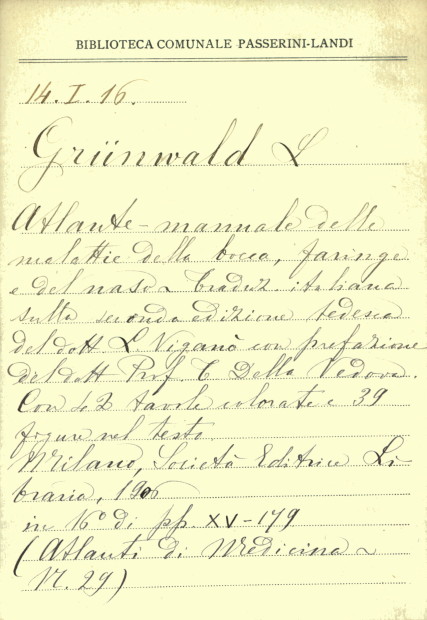 BIBLIOTECA COMUNALE PASSERINI-LANDI
14. I. 16.
Grünwald L
Atlante-manuale delle
malattie della bocca, faringe
e del naso - traduz. italiana
sulla seconda edizione tedesca
del dott. L Viganò con prefazione
del dott Prof. T Della Vedova.
Con 42 tavole colorate e 39
figure nel testo.
Milano, Società Editrice Li-
braria,
in 16° di pp. XV-179
(Atlanti di Medicina -
N. 29)